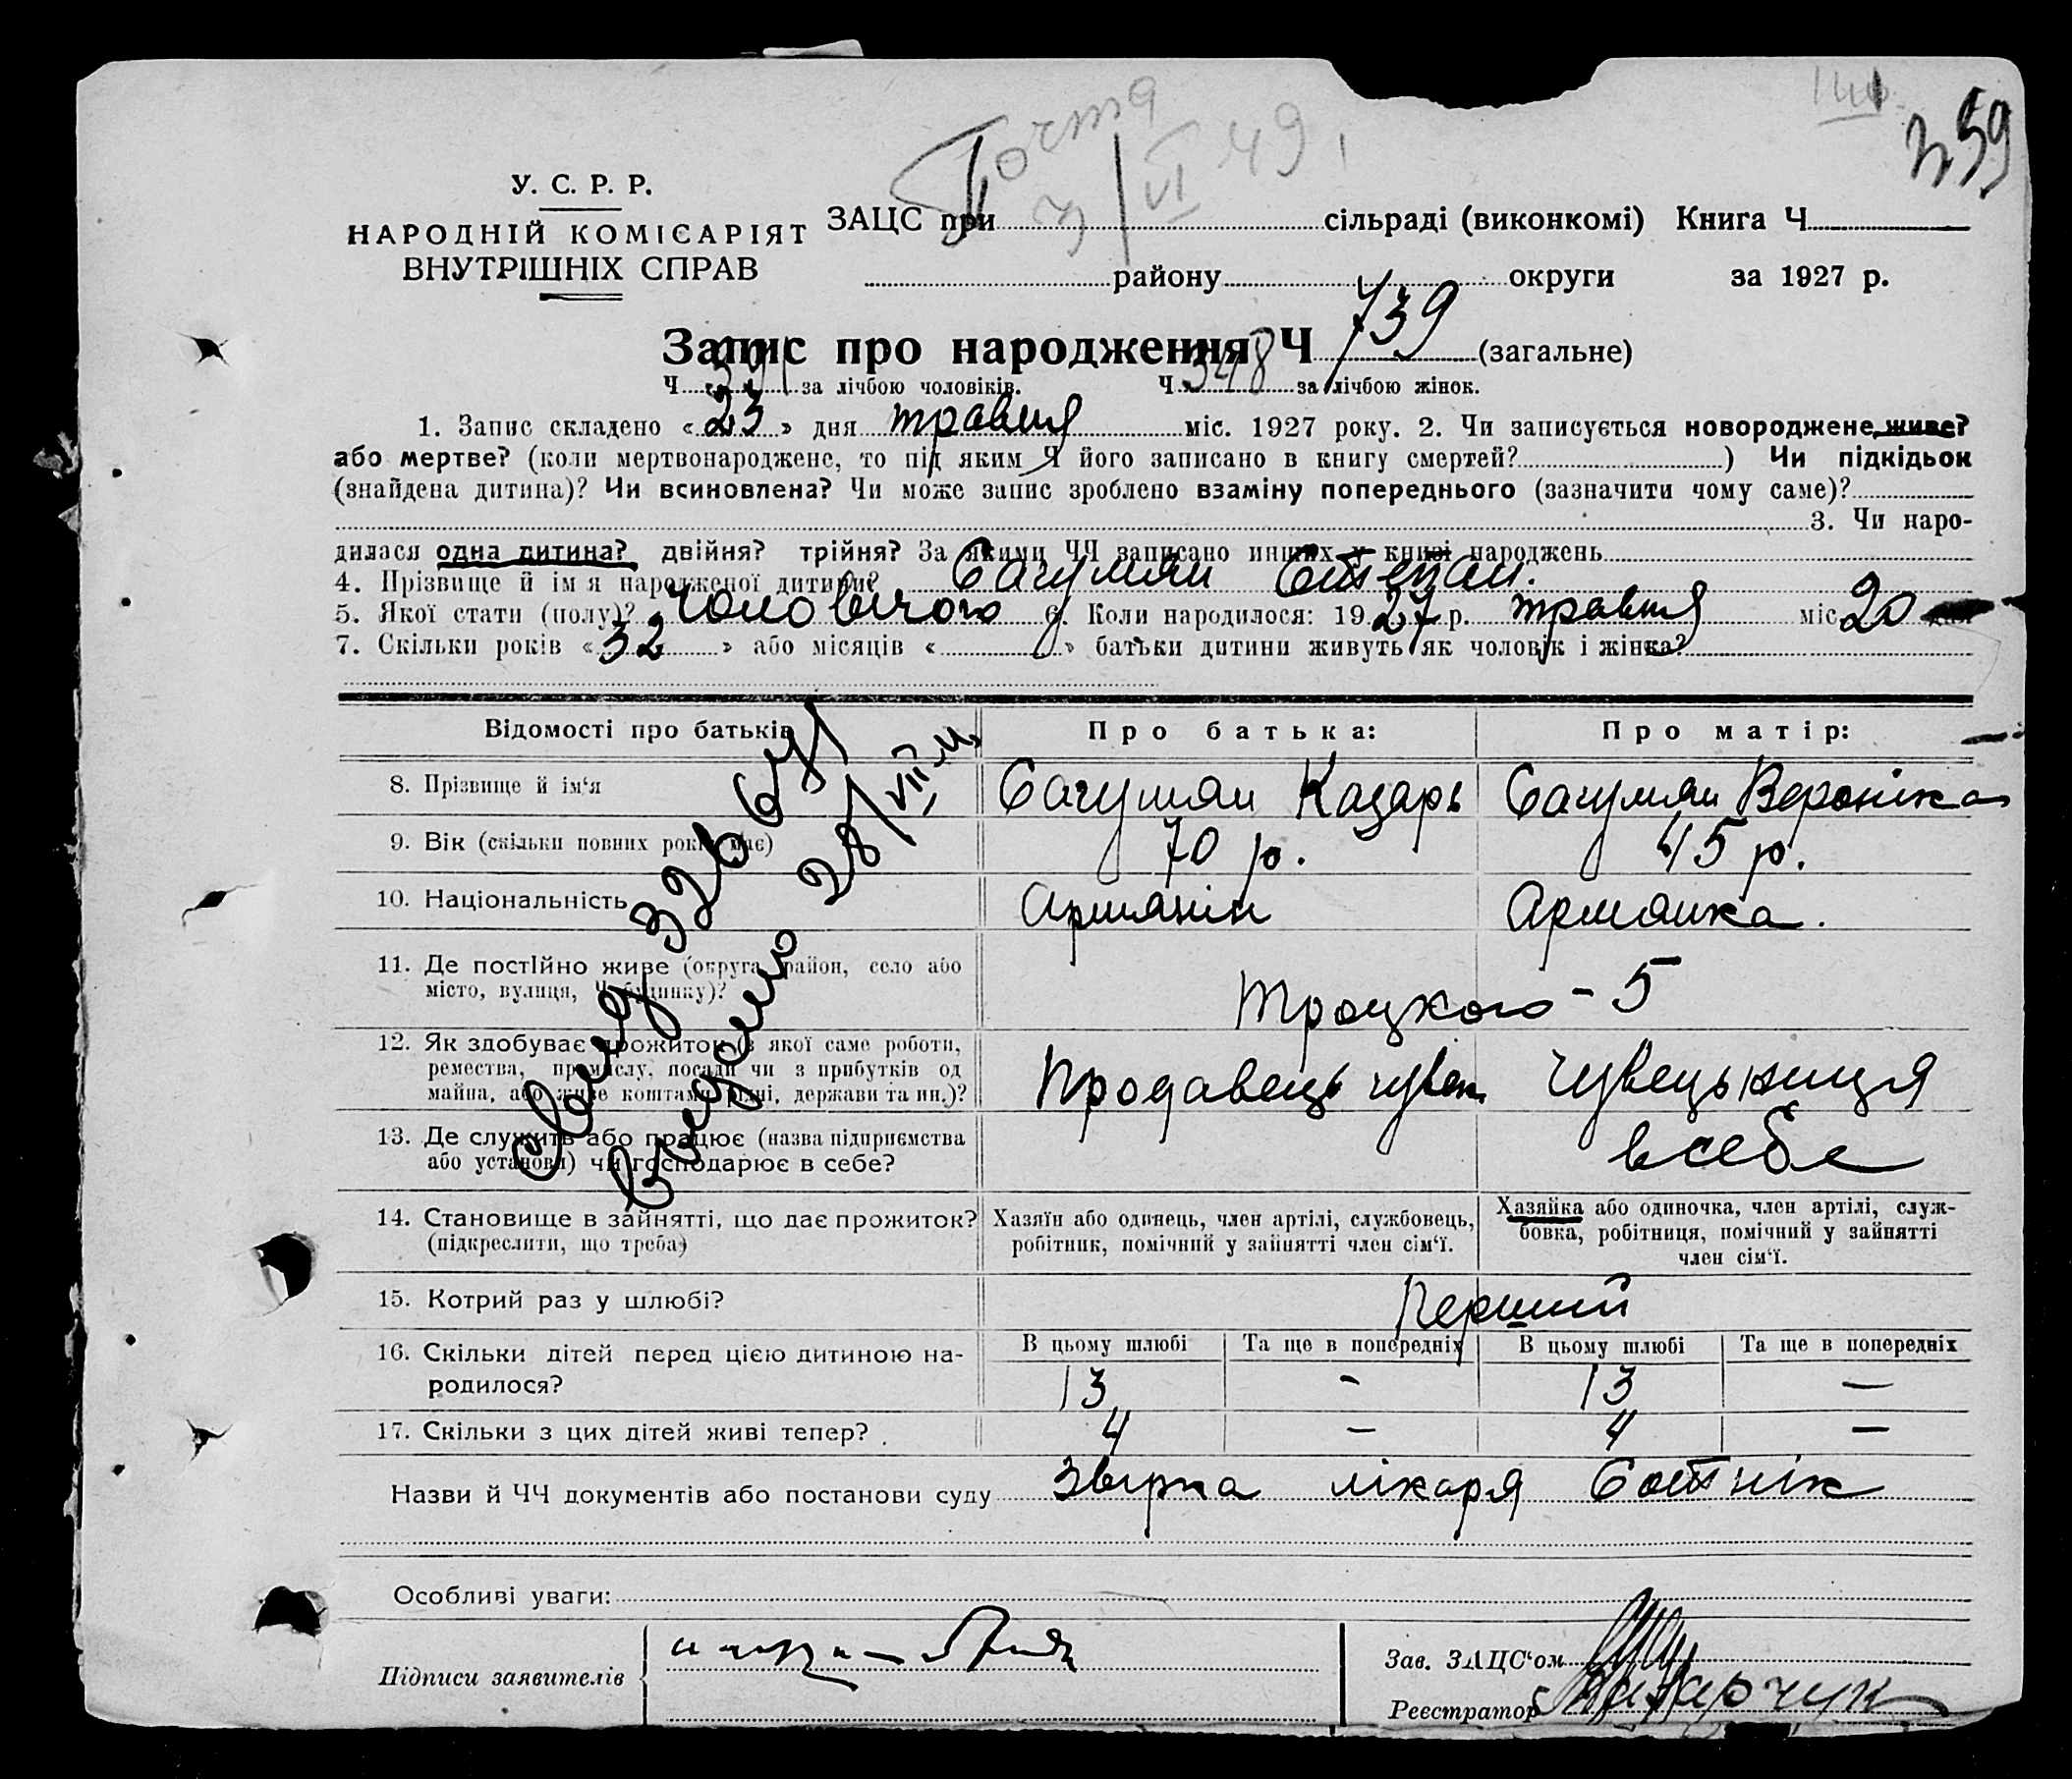 359
Почта
3/VI 49
У. С. Р. Р.
НАРОДНІЙ КОМІСАРІЯТ
ВНУТРІШНІХ СПРАВ
ЗАЦС при сільраді (виконкомі) Книга Ч
району округи за 1927 р.
Запис про народження Ч 739 (загальне)
Ч 391 за лічбою чоловіків. Ч 348 за лічбою жінок.
1. Запис складено « 23 » дня травня міс. 1927 року. 2. Чи записується новороджене живе?
або мертве? (коли мертвонароджене, то під яким Ч його записано в книгу смертей? ) Чи підкідьок
(знайдена дитина)? Чи всиновлена? Чи може запис зроблено взаміну попереднього (зазначити чому саме)?
3. Чи наро-
дилася одна дитина? двійня? трійня? За якими ЧЧ записано инших у книзі народжень
4. Прізвище й ім'я народженої дитини? Сагумян Степан.
5. Якої стати (полу)? чоловічого 6. Коли народилося: 1927 р. травня міс 20 дня
7. Скільки років « 32 » або місяців « » батьки дитини живуть як чоловік і жінка?
Відомості про батьків Про батька: Про матір:
8. Прізвище й ім'я Сагумян Казарь Сагумян Вероніка
9. Вік (скільки повних років має) 70 р. 45 р.
10. Національність Армянін Армянка.
11. Де постійно живе (округа, район, село або
місто, вулиця, Ч будинку)? Троцкого - 5
12. Як здобуває прожиток (з якої саме роботи,
ремества, промислу, посади чи з прибутків од
майна, або живе коштами рідні, держави та ин.)? Продавець чувек Чувечьниця
13. Де служить або працює (назва підприємства
або установи) чи господарює в себе? в себе
14. Становище в зайнятті, що дає прожиток?
(підкреслити, що треба)
Хазяїн або одинець, член артілі, службовець,
робітник, помічний у зайнятті член сім'ї.
Хазяйка або одиночка, член артілі, служ-
бовка, робітниця, помічний у зайнятті
член сім'ї.
15. Котрий раз у шлюбі? Перший
В цьому шлюбі Та ще в попередніх В цьому шлюбі Та ще в попередніх
16. Скільки дітей перед цією дитиною на-
родилося? 13 - 13 —
17. Скільки з цих дітей живі тепер? 4 — 4 —
Назви й ЧЧ документів або постанови суду лікаря Сотнік
Особливі уваги:
Підписи заявителів
Зав. ЗАЦС'ом
Реєстратор
28/VII